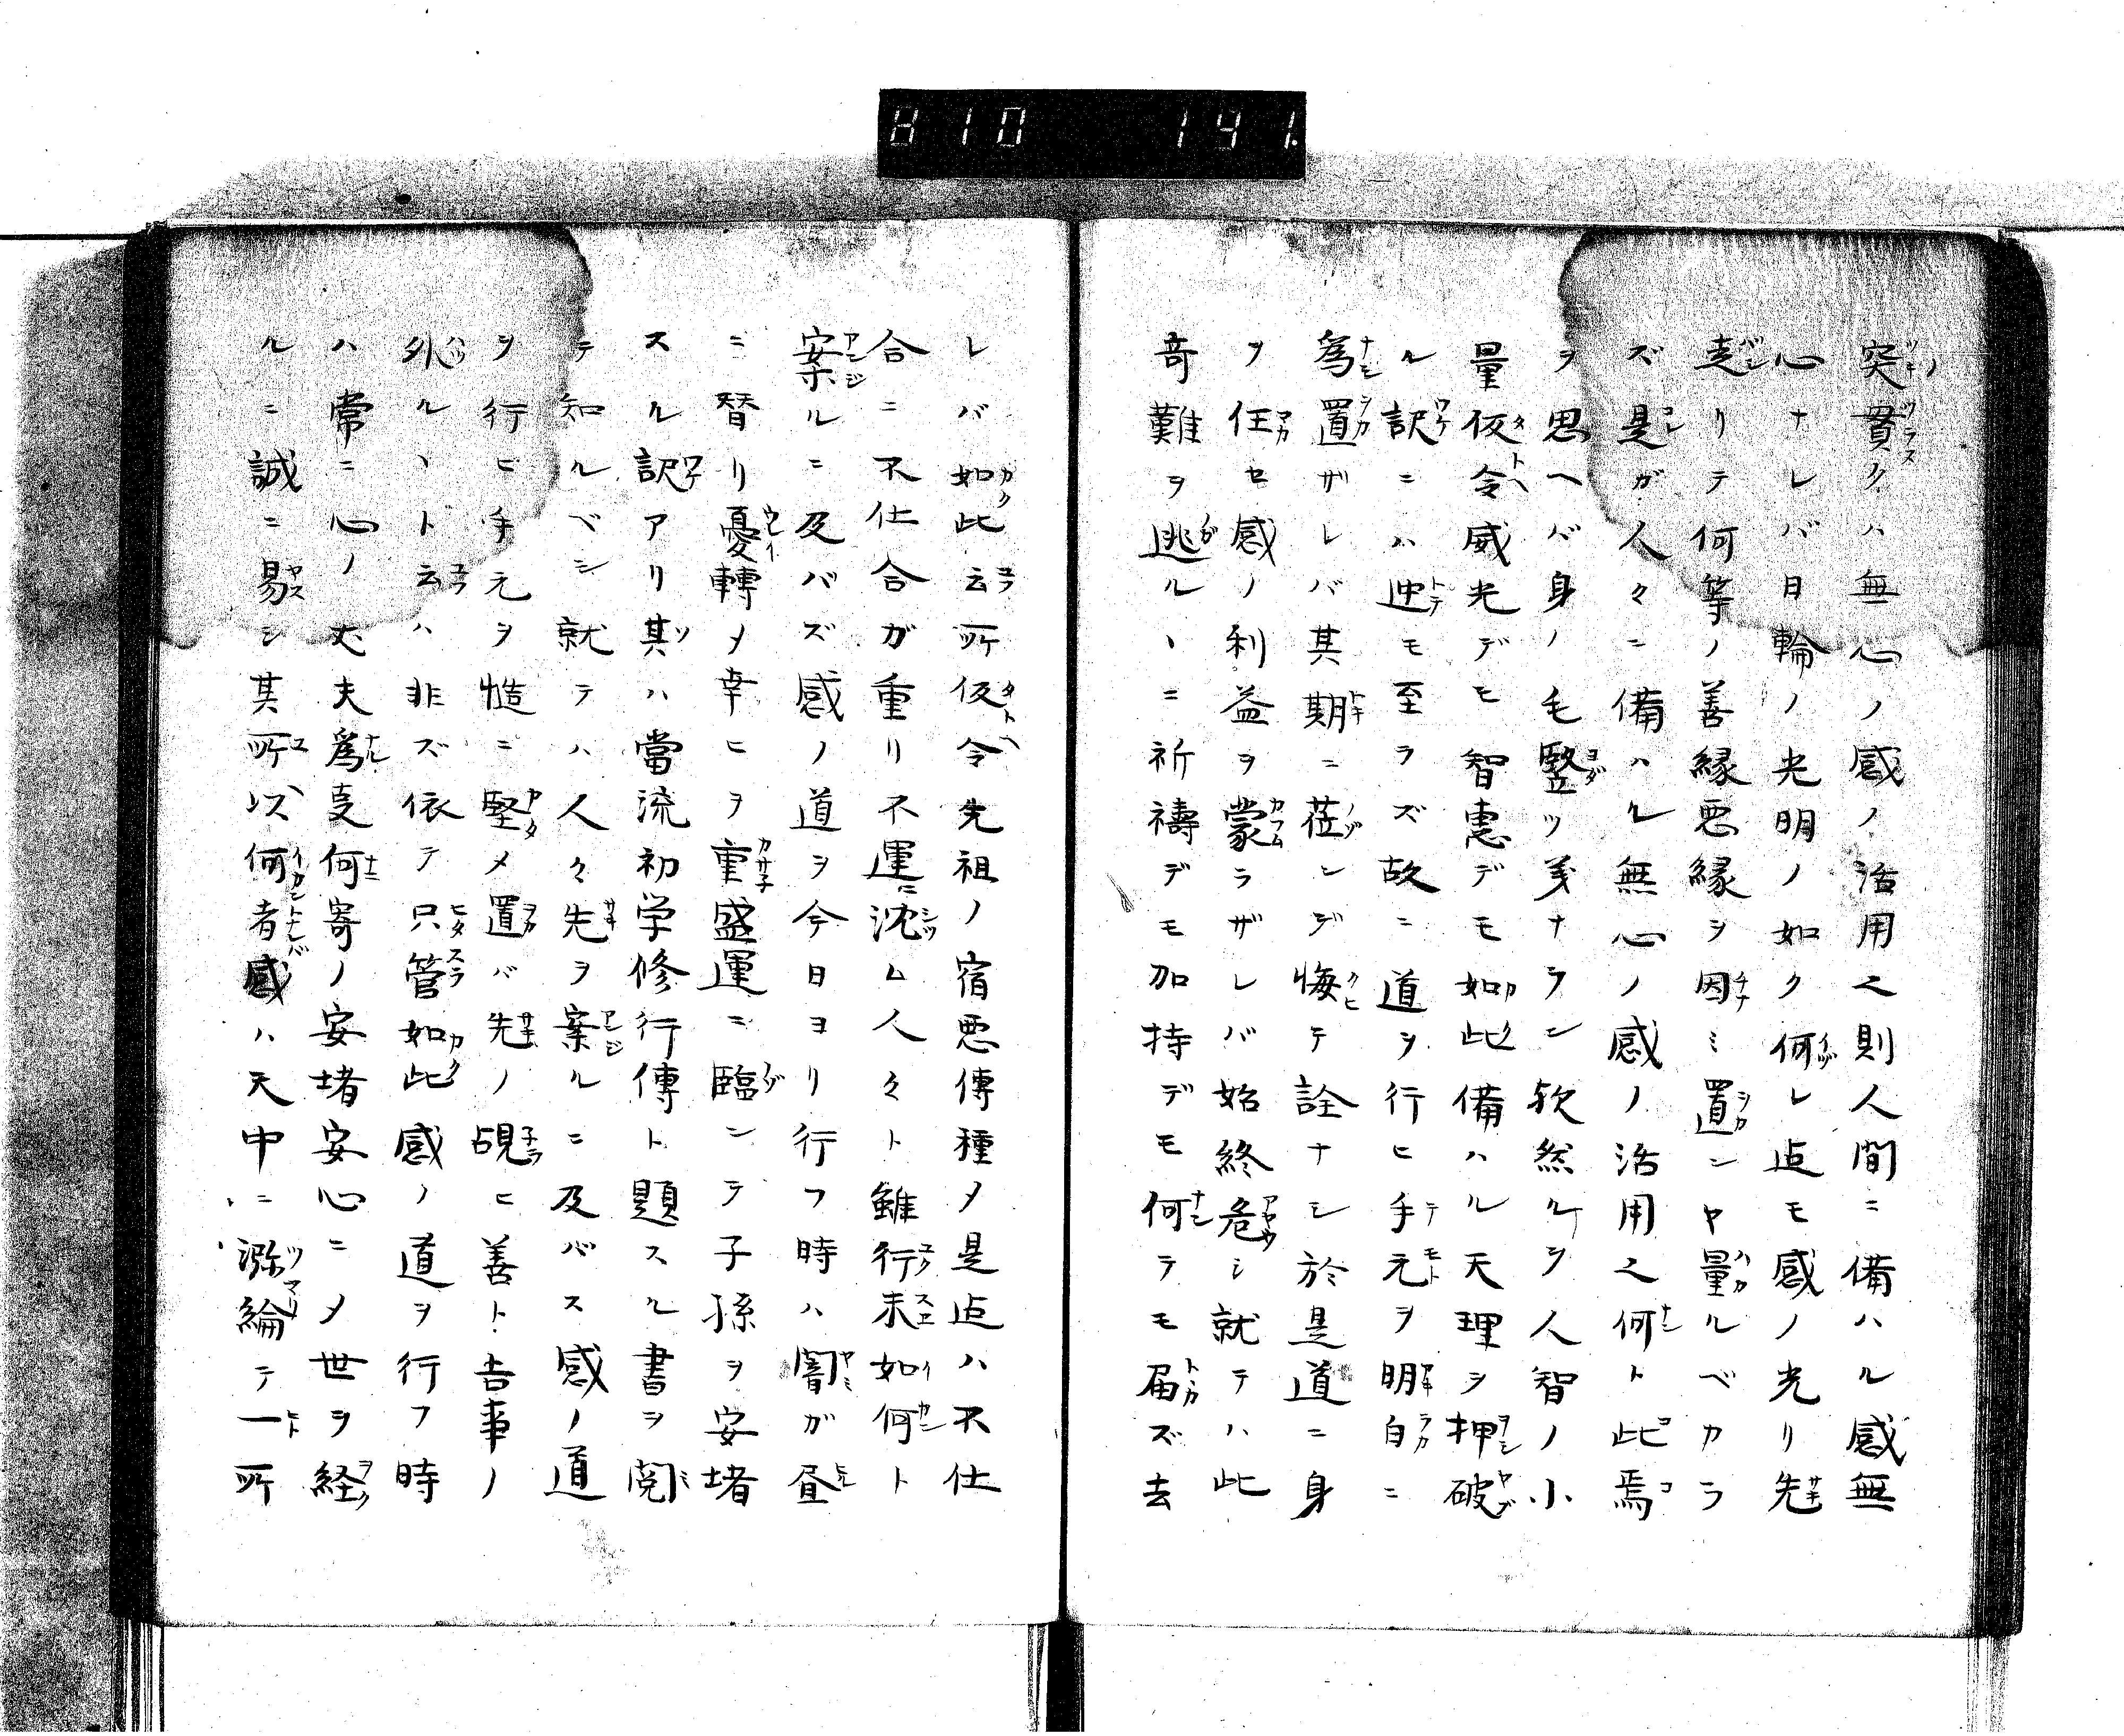 810 141.
突貫クハ無心ノ感ノ活用也則人間ニ備ハル感無
心ナレバ日輪ノ光明ノ如ク何レ迄モ感ノ光リ先
走リテ何等ノ善縁悪縁ヲ因ミ置ンヤ量ルベカラ
ズ是ガ人々ニ備ハル無心ノ感ノ活用也何ト此焉
ヲ思ヘバ身ノ毛竪ツ羙ナラン欤然ルヲ人智ノ小
量仮令威光デモ智恵デモ如此備ハル天理ヲ押破
ル訳ニハ迚モ至ラズ故ニ道ヲ行ヒ手元ヲ明白ニ
為置ザレバ其期ニ莅ンデ悔テ詮ナシ於是道ニ身
ヲ任セ感ノ利益ヲ蒙ラザレバ始終危シ就テハ此
奇難ヲ逃ルヽニ祈禱デモ加持デモ何テモ届ズ去
レバ如此云所仮令先祖ノ宿悪傳種〆是迄ハ不仕
合ニ不仕合ガ重リ不運ニ沈ム人々ト雖行末如何ト
案ルニ及バズ感ノ道ヲ今日ヨリ行フ時ハ闇ガ昼
ニ替リ憂轉〆幸ヒヲ重盛運ニ臨ンテ子孫ヲ安堵
スル訳アリ其ハ當流初学修行傳ト題スル書ヲ閲
テ知ルベシ就テハ人々先ヲ案ルニ及バス感ノ道
ヲ行ヒ手元ヲ慥ニ堅メ置バ先ノ覘ヒ善ト吉事ノ
外ルヽト云ハ非ズ依テ只管如此感ノ道ヲ行フ時
ハ常ニ心ノ丈夫為叓何寄ノ安堵安心ニ〆世ヲ経
ルニ誠ニ易シ其所以何者感ハ天中ニ瀰綸テ一所